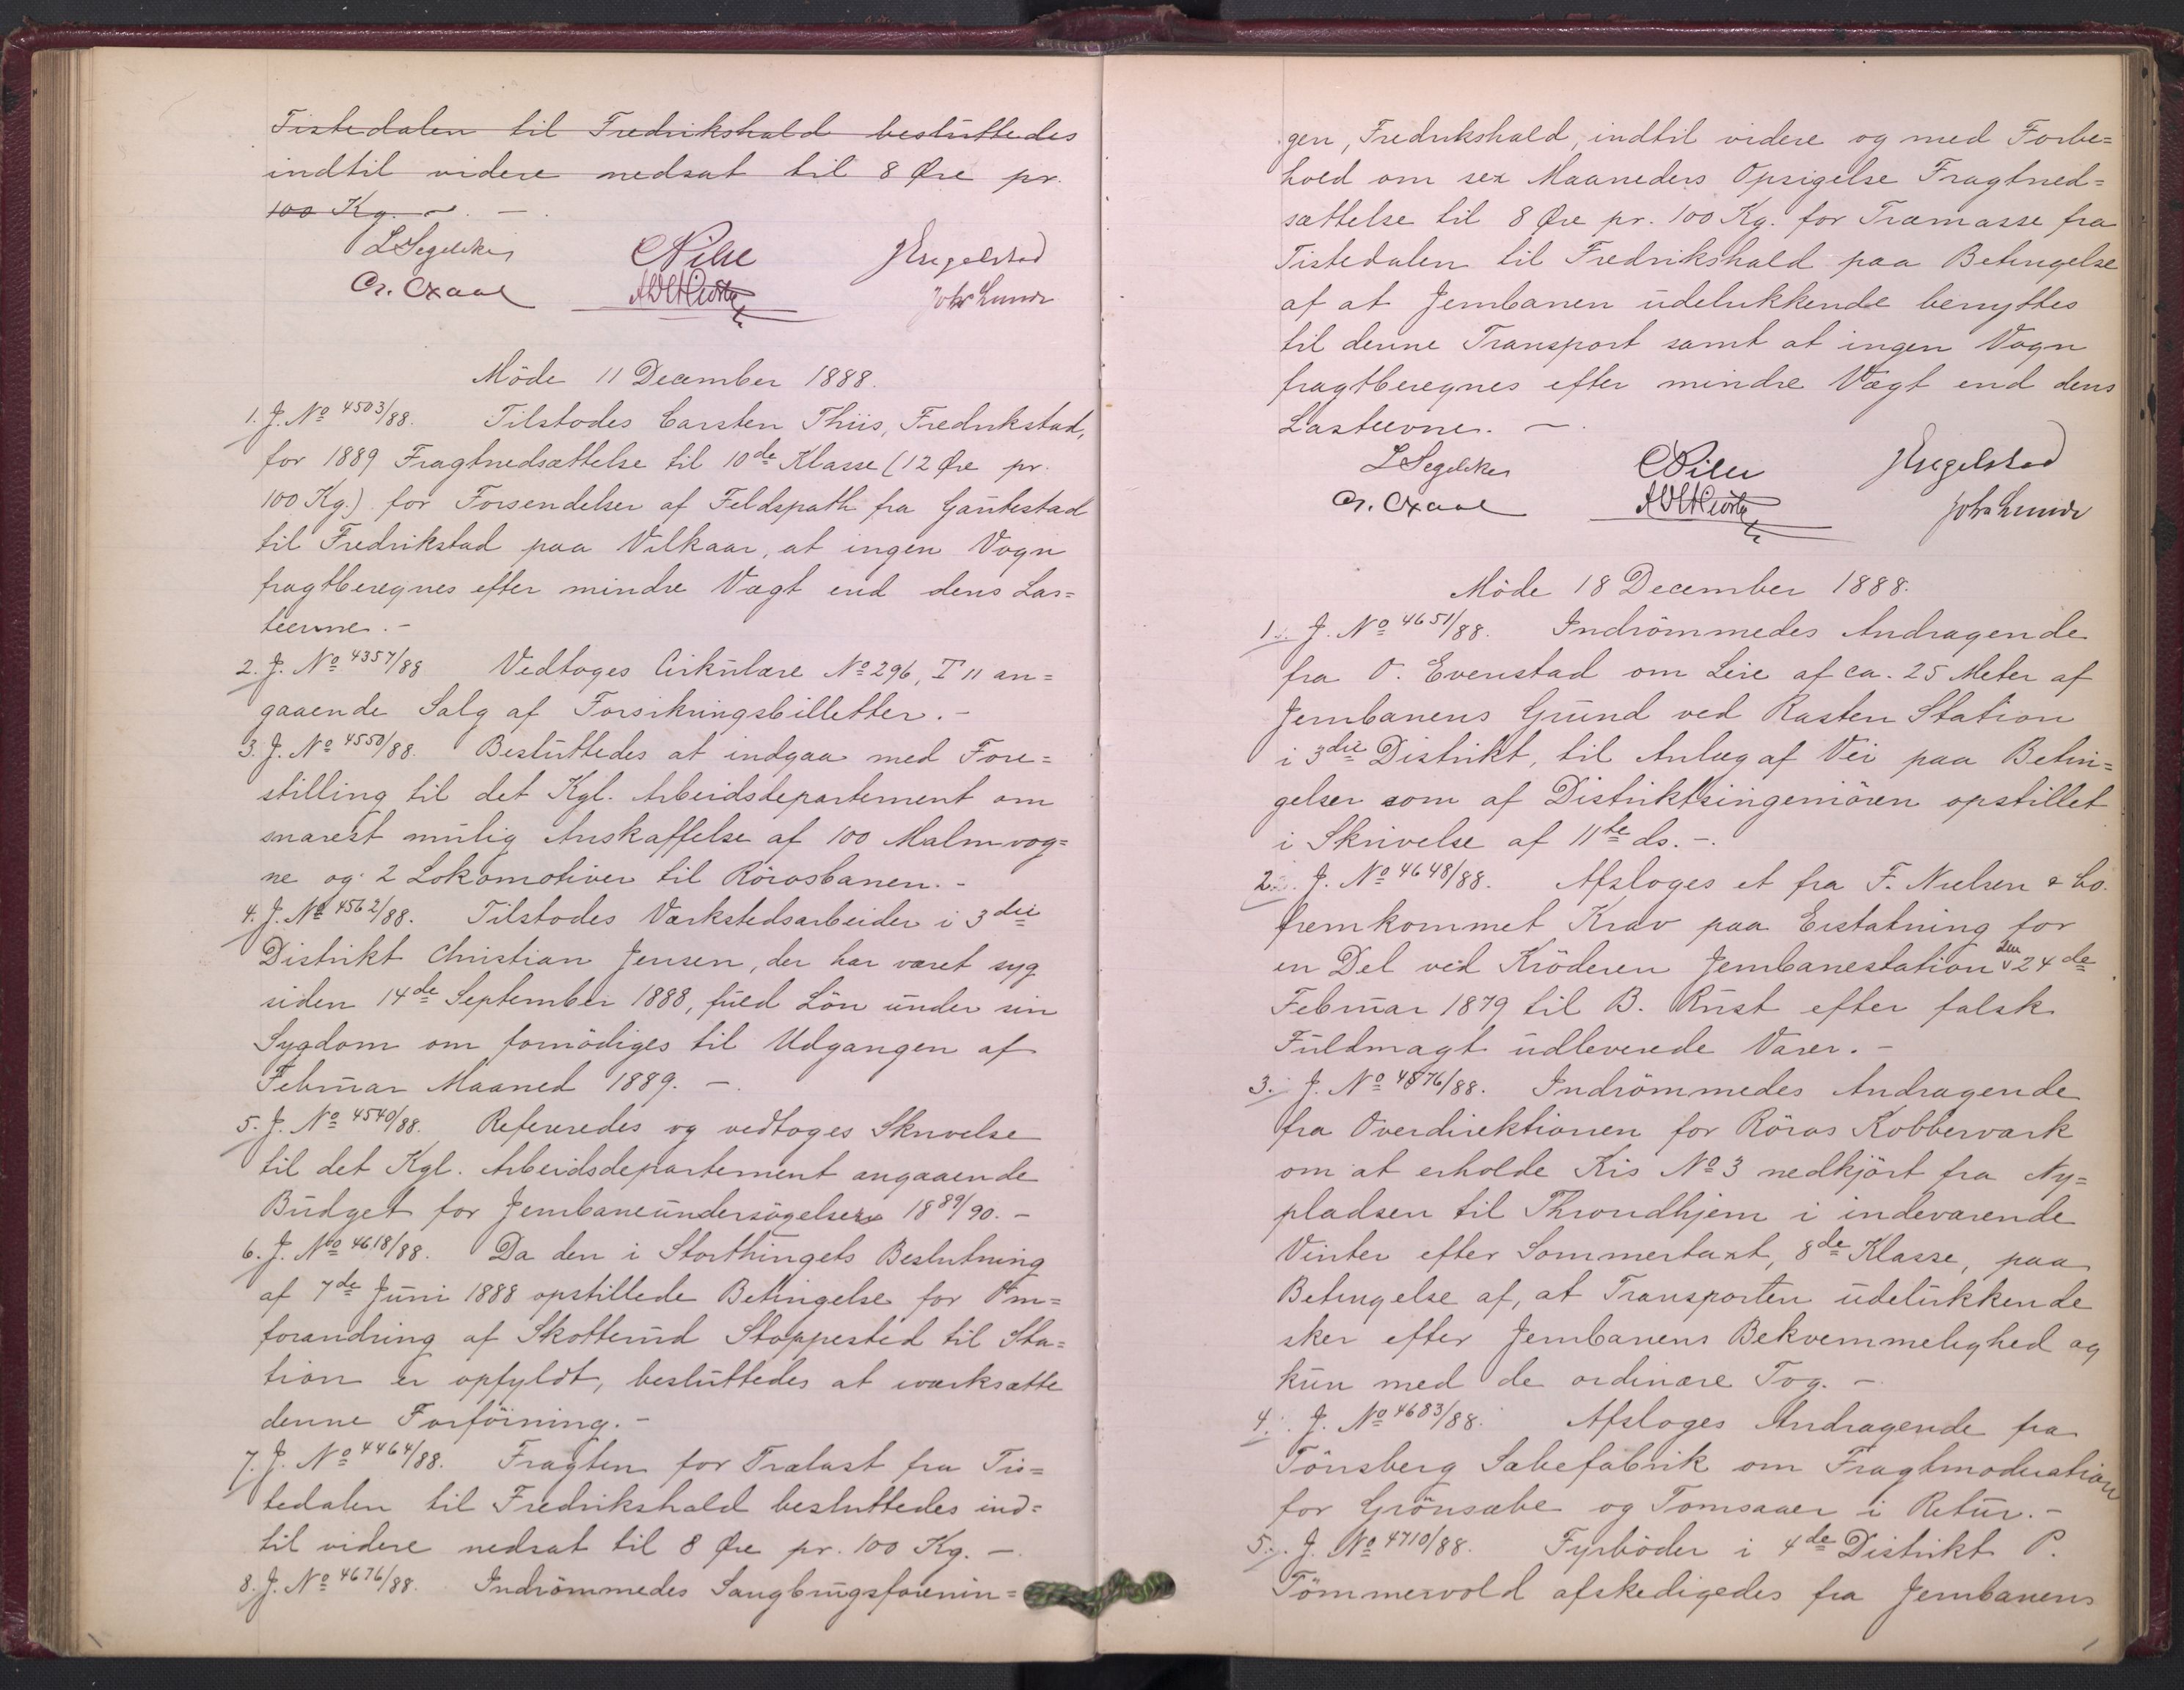 Tistedalen til Fredrikshald besluttedes
indtil videre nedsat til 8 Øre pr.
100 Kg. —
L Segelcke CPihl JEngelstad
Joh. Lunde
Möde 11 December 1888.
1. J. No 4503/88. Tilstodes Carsten Thiis, Fredrikstad,
for 1889 Fragtnedsættelse til 10de Klasse (12 Øre pr.
100 Kg.) for Forsendelser af Feldspath fra Gautestad
til Fredrikstad paa Vilkaar, at ingen Vogn
fragtberegnes efter mindre Vægt end dens Las=
teevne. —
2. J. No 4357/88 Vedtoges Cirkulære No 296, T 11 an=
gaaende Salg af Forsikringsbilletter. —
3. J. No 4550/88. Besluttedes at indgaa med Fore=
stilling til det Kgl. Arbeidsdepartement om
snarest mulig Anskaffelse af 100 Malmvog=
ne og 2 Lokomotiver til Rörosbanen. —
4. J. No 4562/88. Tilstodes Værkstedsarbeider i 3die
Distrikt Christian Jensen, der har været syg
siden 14de September 1888, fuld Lön under sin
Sygdom om fornödiges til Udgangen af
Februar Maaned 1889. —
5. J. No 4540/88. Refereredes og vedtoges Skrivelse
til det Kgl. Arbeidsdepartement angaaende
Budget for Jernbaneundersögelser 1889/90. —
6. J. No 4618/88. Da den i Storthingets Beslutning
af 7de Juni 1888 opstillede Betingelse for Om=
forandring af Skotterud Stoppested til Sta=
tion er opfyldt, besluttedes at iværksætte
denne Forföining. —
7. J. No 4464/88. Fragten for Trælast fra Tis=
tedalen til Fredrikshald besluttedes ind=
til videre nedsat til 8 Øre pr. 100 Kg. —
8. J. No 4676/88. Indrömmedes Saugbrugsforenin=
gen, Fredrikshald, indtil videre og med Forbe=
hold om sex Maaneders Opsigelse Fragtned=
sættelse til 8 Øre pr. 100 Kg. for Træmasse fra
Tistedalen til Fredrikshald paa Betingelse
af at Jernbanen udelukkende benyttes
til denne Transport samt at ingen Vogn
fragtberegnes efter mindre Vægt end dens
Lasteevne. —
L Segelcke CPihl JEngelstad
Joh. Lunde
Möde 18 December 1888.
1. J. No 4651/88. Indrömmedes Andragende
fra O. Evenstad om Leie af ca. 25 Meter af
Jernbanens Grund ved Rasten Station
i 3die Distrikt, til Anlæg af Vei paa Betin=
gelser som af Distriktsingeniören opstillet
i Skrivelse af 11te ds. —
2. J. No 4648/88. Afsloges et fra F. Nielsen & Co.
fremkommet Krav paa Erstatning for
en Del ved Kröderen Jernbanestation den 24de
Februar 1879 til B. Rust efter falsk
Fuldmagt udleverede Varer. —
3. J. No 4576/88. Indrömmedes Andragende
fra Overdirektionen for Röros Kobberværk
om at erholde Kis No 3 nedkjört fra Ny=
pladsen til Throndhjem i indeværende
Vinter efter Sommertaxt, 8de Klasse, paa
Betingelse af, at Transporten udelukkende
sker efter Jernbanens Bekvemmelighed og
kun med de ordinære Tog. —
4. J. No 4683/88. Afsloges Andragende fra
Tönsberg Sæbefabrik om Fragtmoderation
for Grönsæbe og Tomsaaer i Retur. —
5. J. No 4710/88. Fyrböder i 4de Distrikt P.
Tömmervold afskedigedes fra Jernbanens